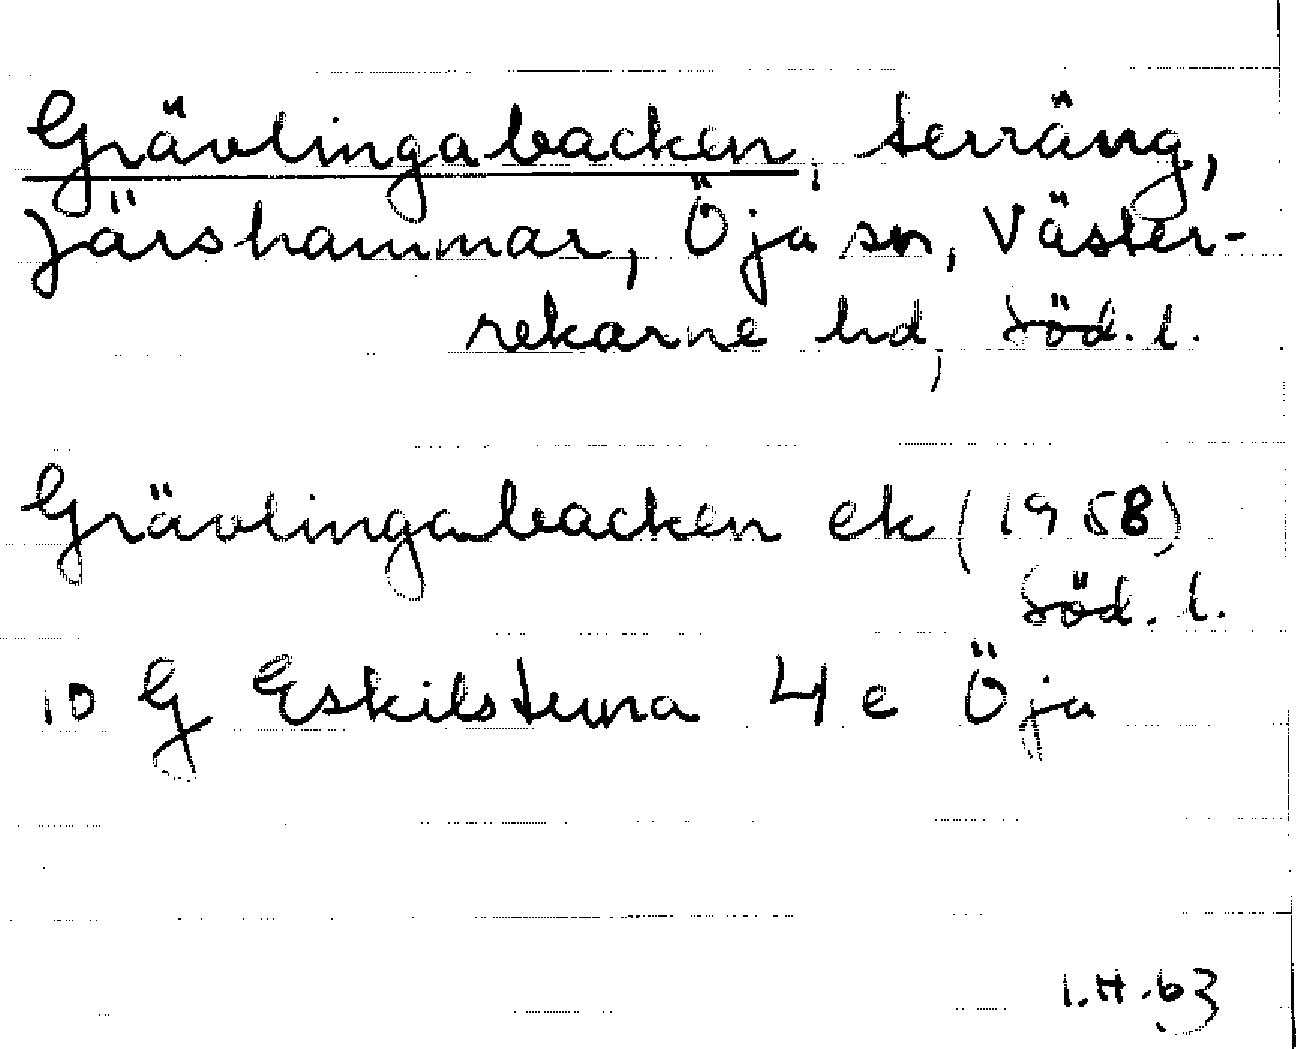 Grävlingabacken, terräng,
Järshammar, Öja sn, Väster-
rekarne hd, Söd. l.
Grävlingabacken ek (1958)
Söd. l.
10 G Eskilstuna 4 e Öja
I.H.63